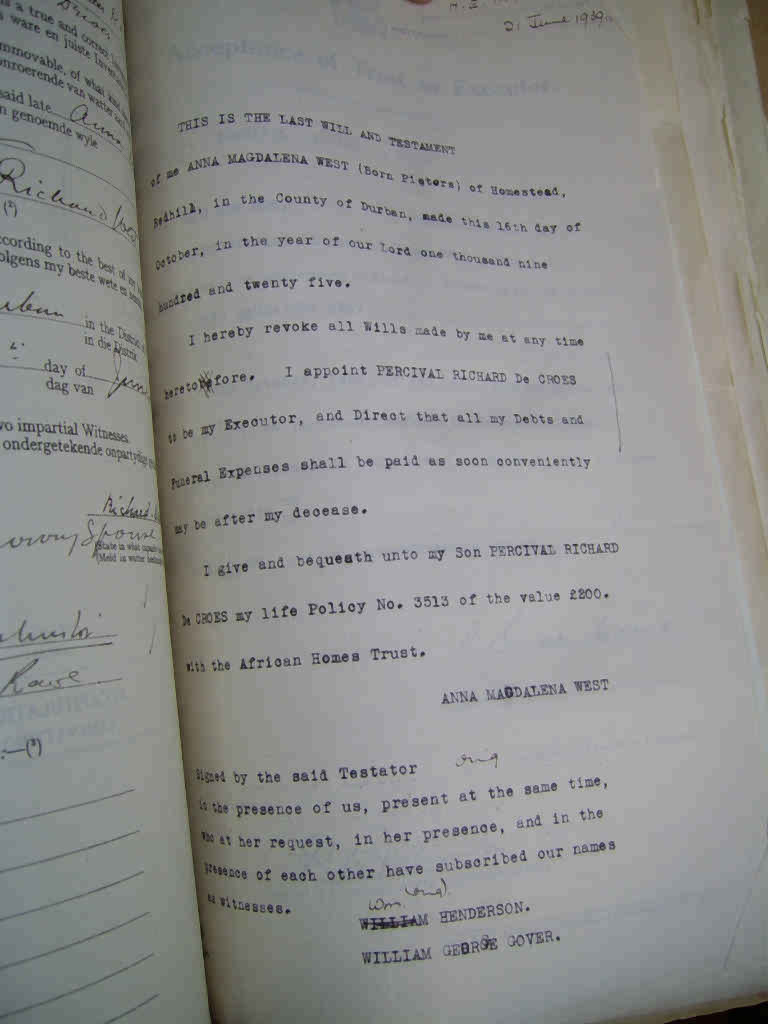 is a true and correct
is ware en juiste
immovable, of what
onroerende van watter
said late Anna
n genoemde wyle
Richard West
(²)
According to the best of my
volgens my beste wete en
in the District
in die Distrik
day of June
dag van
two impartial Witnesses.
ondergetekende onpartydige
Richard
Spouse
(State in what capacity
(Meld in watter
Rowe
—(³)
21 June 1939
THIS IS THE LAST WILL AND TESTAMENT
of me ANNA MAGDALENA WEST (Born Pieters) of Homestead,
Redhill, in the County of Durban, made this 16th day of
October, in the year of our Lord one thousand nine
hundred and twenty five.
I hereby revoke all Wills made by me at any time
heretobefore. I appoint PERCIVAL RICHARD De CROES
to be my Executor, and Direct that all my Debts and
Funeral Expenses shall be paid as soon conveniently
may be after my decease.
I give and bequeath unto my Son PERCIVAL RICHARD
De CROES my life Policy No. 3513 of the value £200.
with the African Homes Trust.
ANNA MAGDALENA WEST
Signed by the said Testator
in the presence of us, present at the same time,
who at her request, in her presence, and in the
presence of each other have subscribed our names
as witnesses.
Wm.
WILLIAM HENDERSON.
WILLIAM GEORGE GOVER.